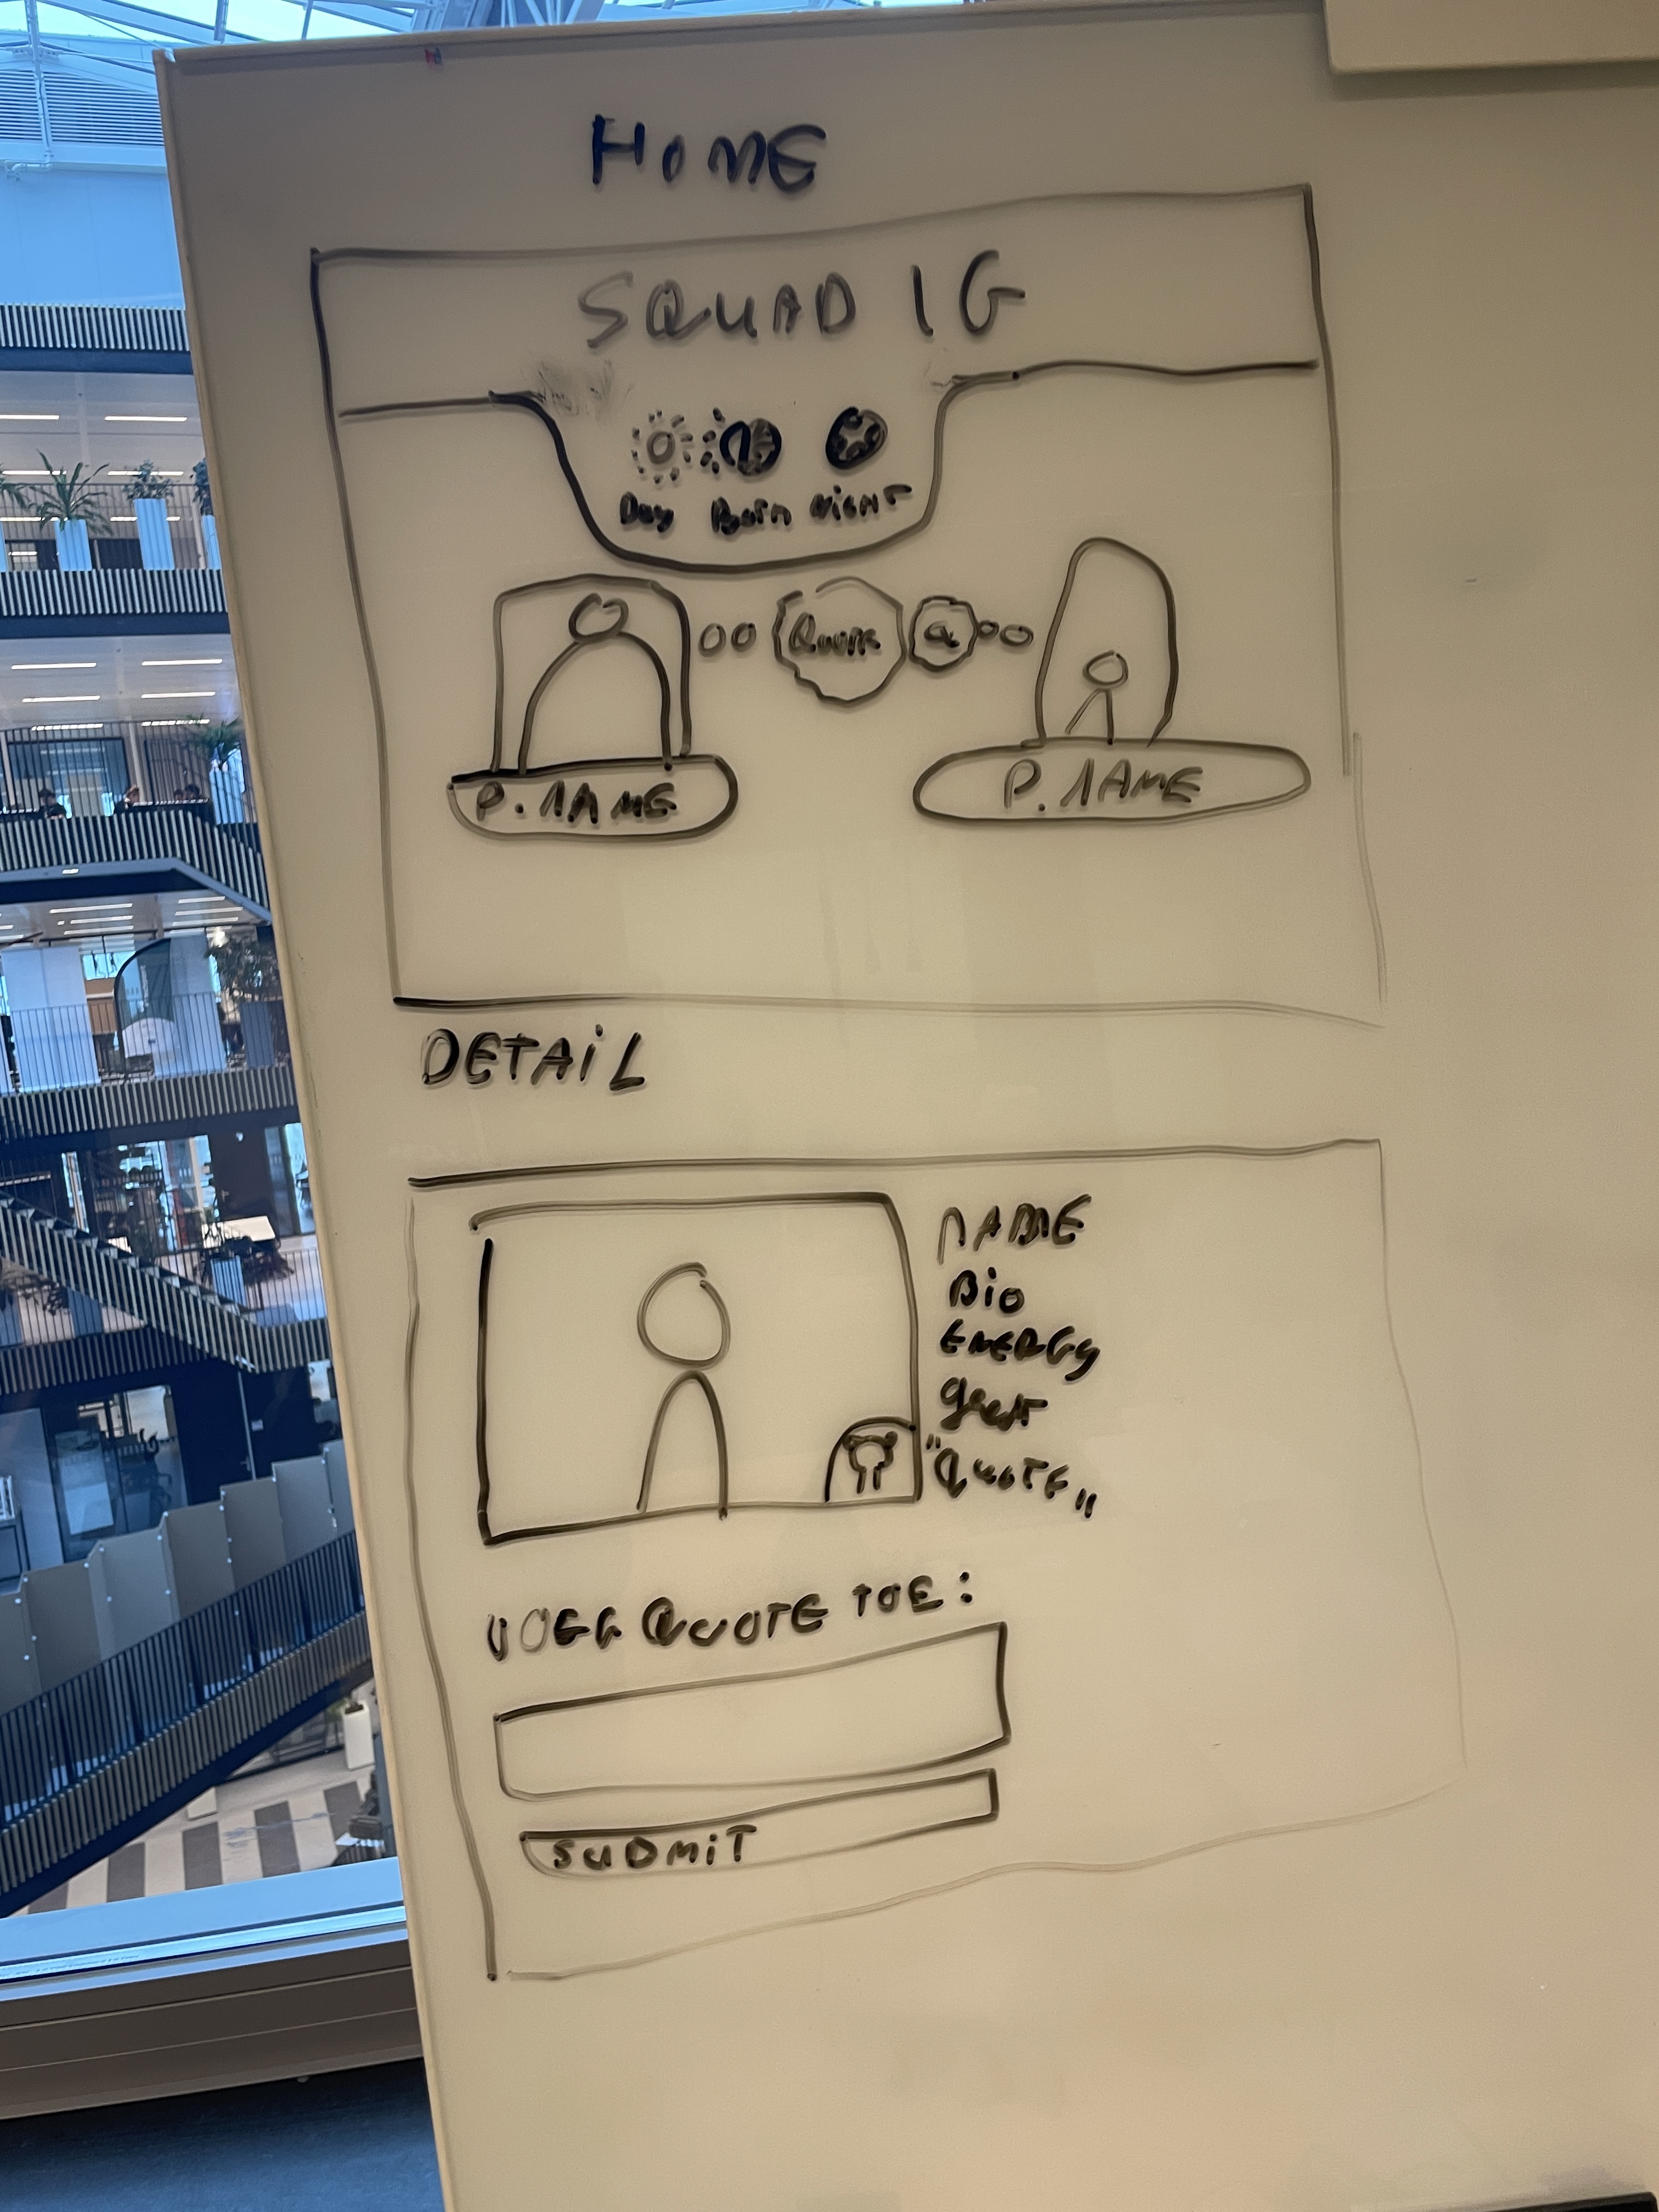 HOME
SQUAD 1G
Day Both NIGHT
Quote Q
P. NAME P. NAME
DETAIL
NAME
Bio
ENERGY
"QUOTE"
VOEG QUOTE TOE:
SUBMIT